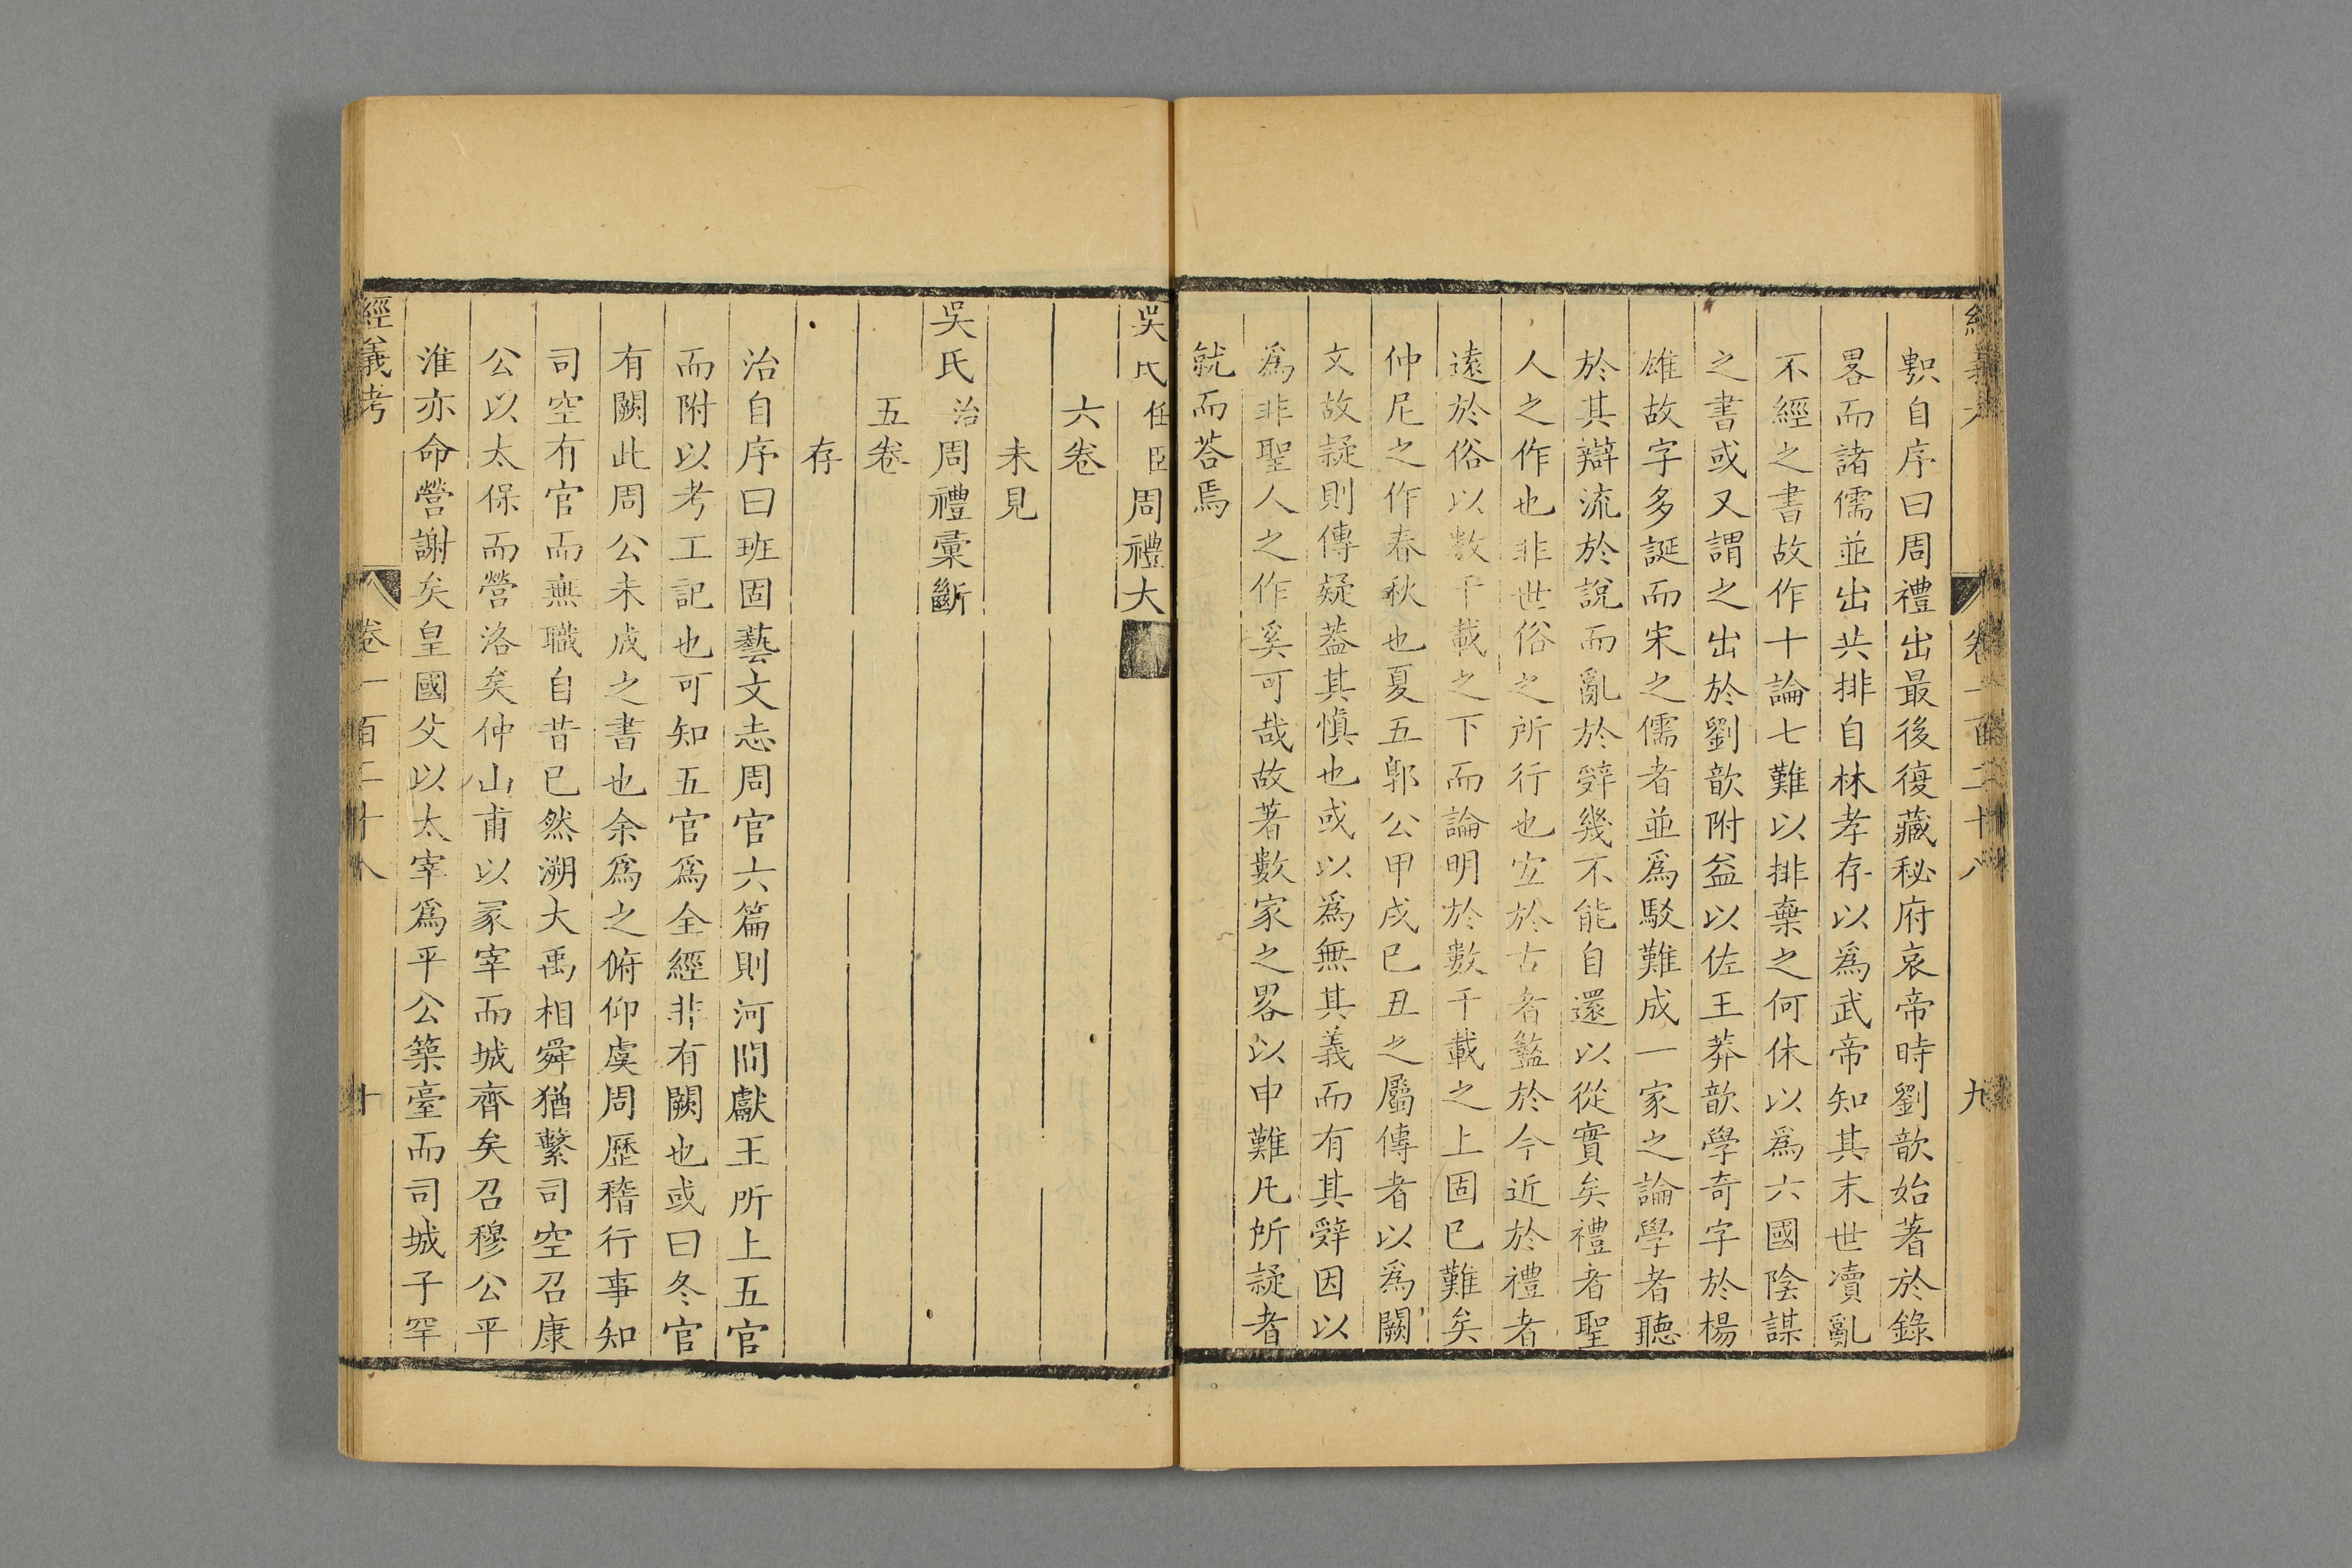 經義考
卷一百二十八
九
斅自序曰周禮出最後復藏秘府哀帝時劉歆始著於錄
畧而諸儒並出共排自林孝存以爲武帝知其末世瀆亂
不經之書故作十論七難以排棄之何休以爲六國陰謀
之書或又謂之出於劉歆附益以佐王莽歆學奇字於楊
雄故字多誕而宋之儒者並爲駁難成一家之論學者聽
於其辯流於說而亂於辤幾不能自還以從實矣禮者聖
人之作也非世俗之所行也宐於古者盭於今近於禮者
遠於俗以數千載之下而論明於數千載之上固已難矣
仲尼之作春秋也夏五郭公甲戌已丑之屬傳者以爲闕
文故疑則傳疑葢其慎也或以爲無其義而有其辤因以
爲非聖人之作奚可哉故著數家之畧以申難凡所疑者
就而荅焉
吳氏任臣周禮大
六卷
未見
吳氏治周禮彙斷
五卷
存
治自序曰班固藝文志周官六篇則河間獻王所上五官
而附以考工記也可知五官爲全經非有闕也或曰冬官
有闕此周公未成之書也余爲之俯仰虞周歷稽行事知
司空有官而無職自昔已然溯大禹相舜猶繫司空召康
公以太保而營洛矣仲山甫以冢宰而城齊矣召穆公平
淮亦命營謝矣皇國父以太宰爲平公築臺而司城子罕
經義考
卷一百二十八
十